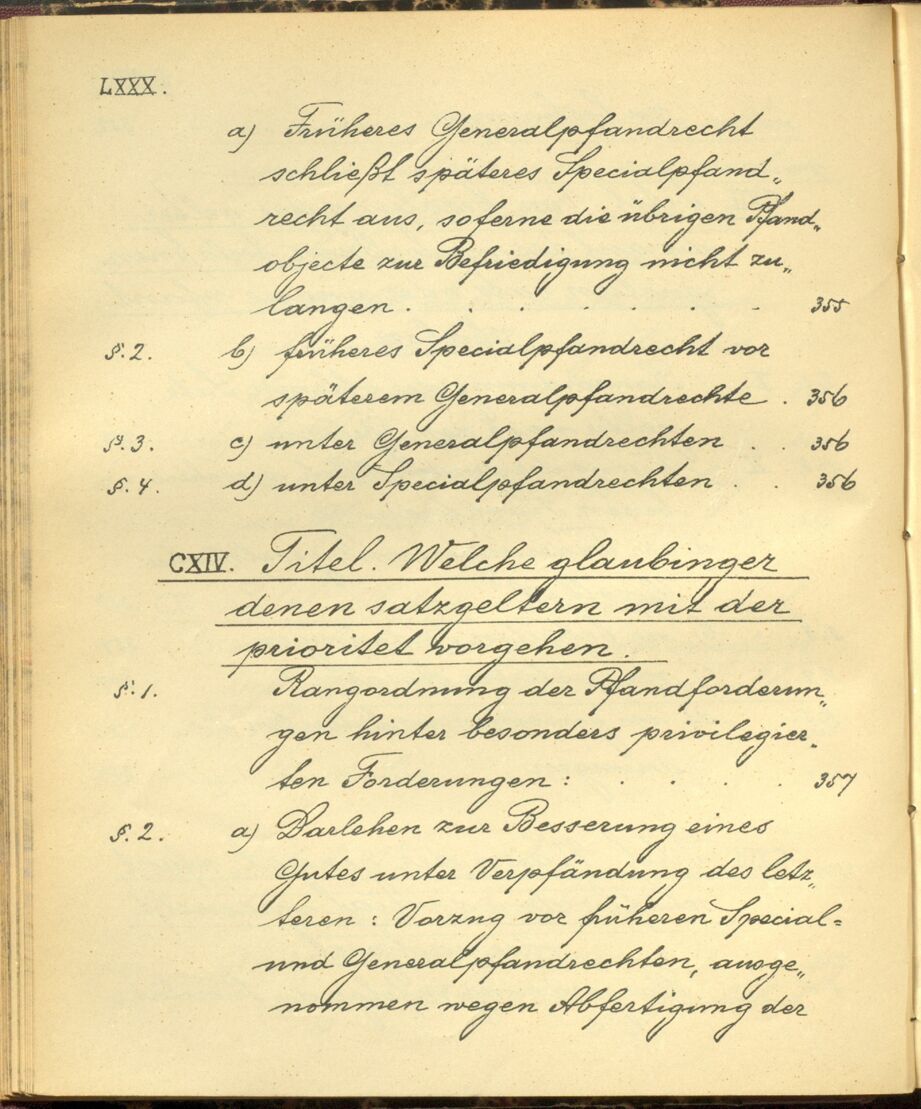 LXXX.
a) Früheres Generalpfandrecht
schließt späteres Specialpfand„
recht aus, soferne die übrigen Pfand„
objecte zur Befriedigung nicht zu„
langen . . . . . . . . 355
§. 2. b) früheres Specialpfandrecht vor
späterem Generalpfandrechte . 356
§. 3. c) unter Generalpfandrechten . . 356
§. 4. d) unter Specialpfandrechten . . 356
CXIV. Titel. Welche glaubinger
denen satzgeltern mit der
prioritet vorgehen.
§. 1. Rangordnung der Pfandforderun„
gen hinter besonders privilegier„
ten Forderungen : . . . . 357
§. 2. a) Darlehen zur Besserung eines
Gutes unter Verpfändung des letz„
teren : Vorzug vor früheren Special=
und Generalpfandrechten, ausge„
nommen wegen Abfertigung der